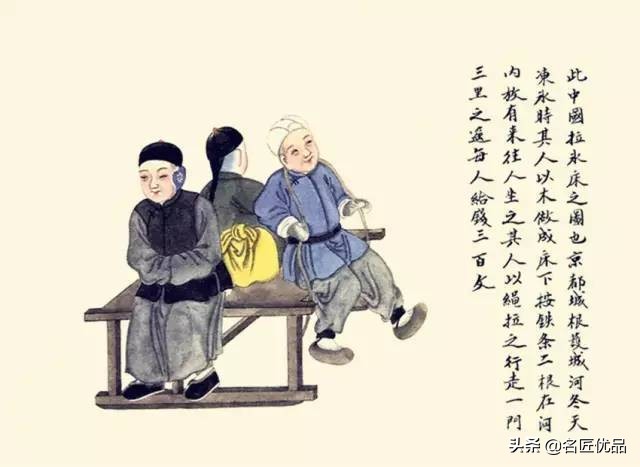 此中國拉氷床之圖也京都城根護城河冬天
凍氷時其人以木做成床下按鉄条二根在河
内放有来往人坐之其人以繩拉之行走一門
三里之遥每人給錢三百文
头条 @名匠优品